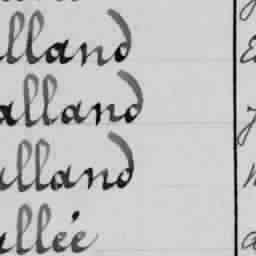 alland
alland
alland
allée